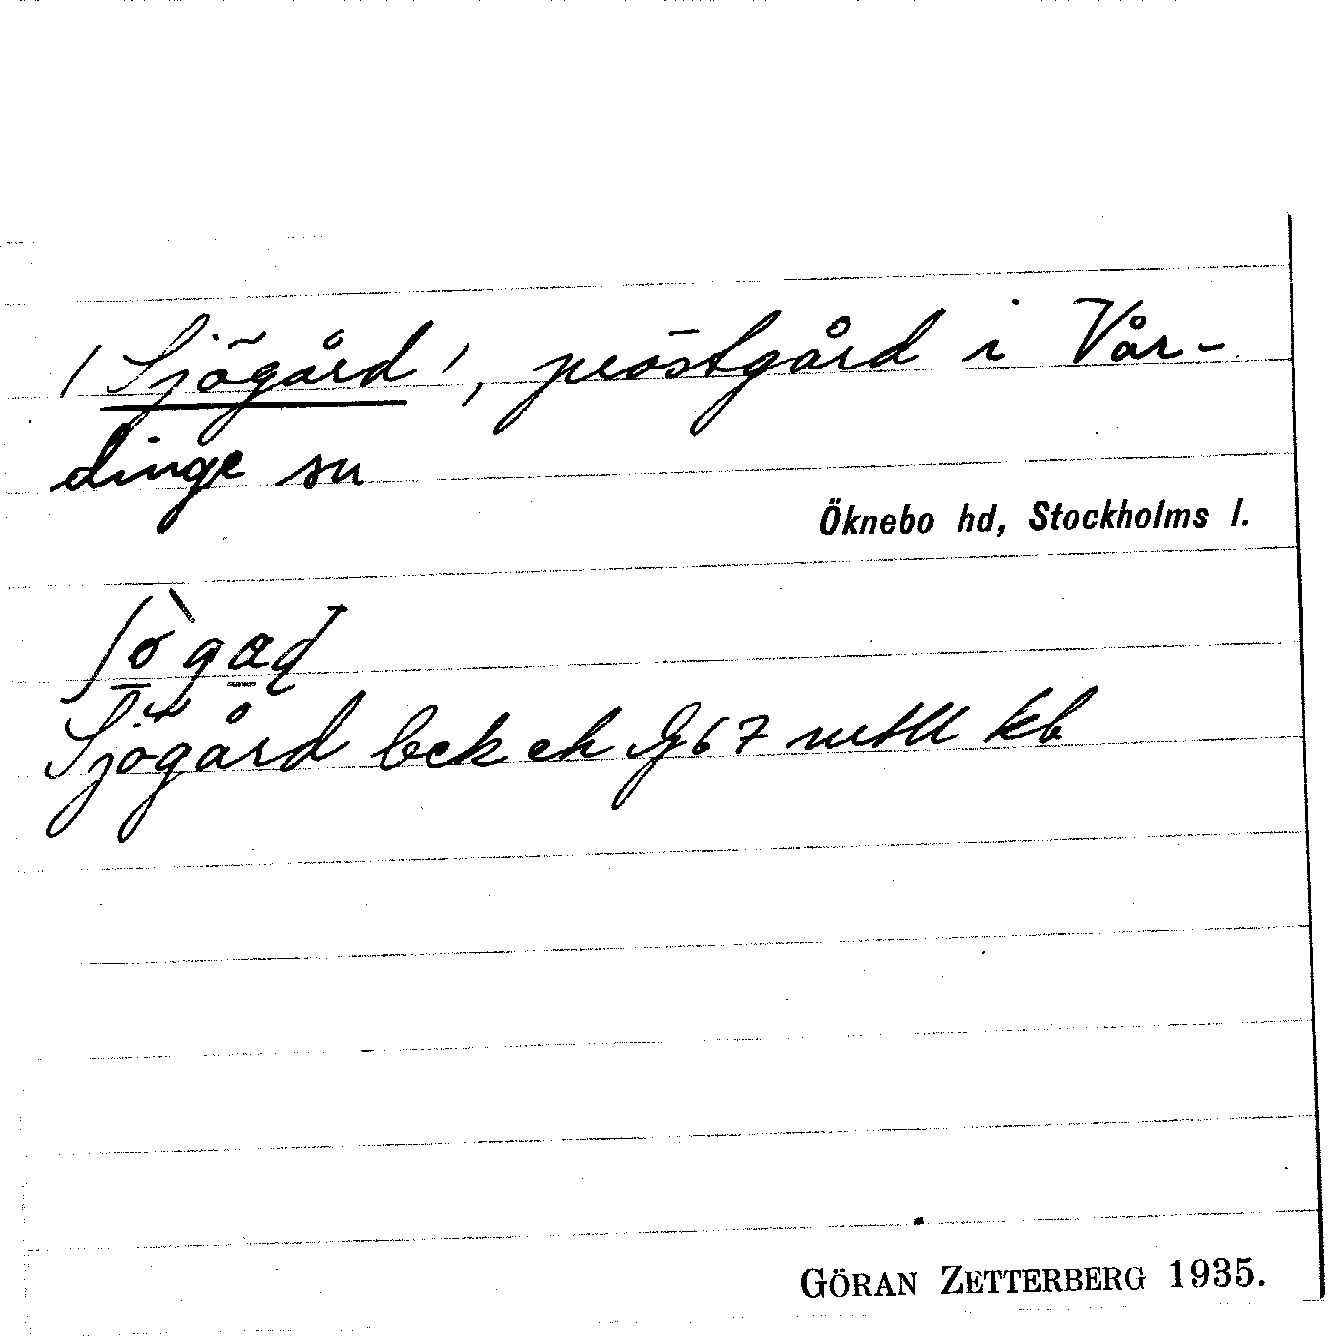 (Sjögård), prostgård i Vår-
dinge sn
Öknebo hd, Stockholms l.
Sjögård bck ek G67 mtll kb
GÖRAN ZETTERBERG 1935.